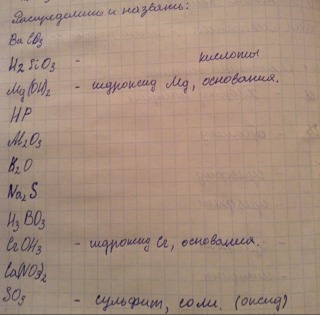 Распределить и назвать:
BaCO3
H2SiO3 - кислоты
Mg(OH)2 - гидроксид Mg, основания.
HP
Al2O3
K2O
Na2S
H3BO3
CrOH3 - гидроксид Cr, основания.
Ca(NO3)2
SO3 - сульфит, соли. (оксид)